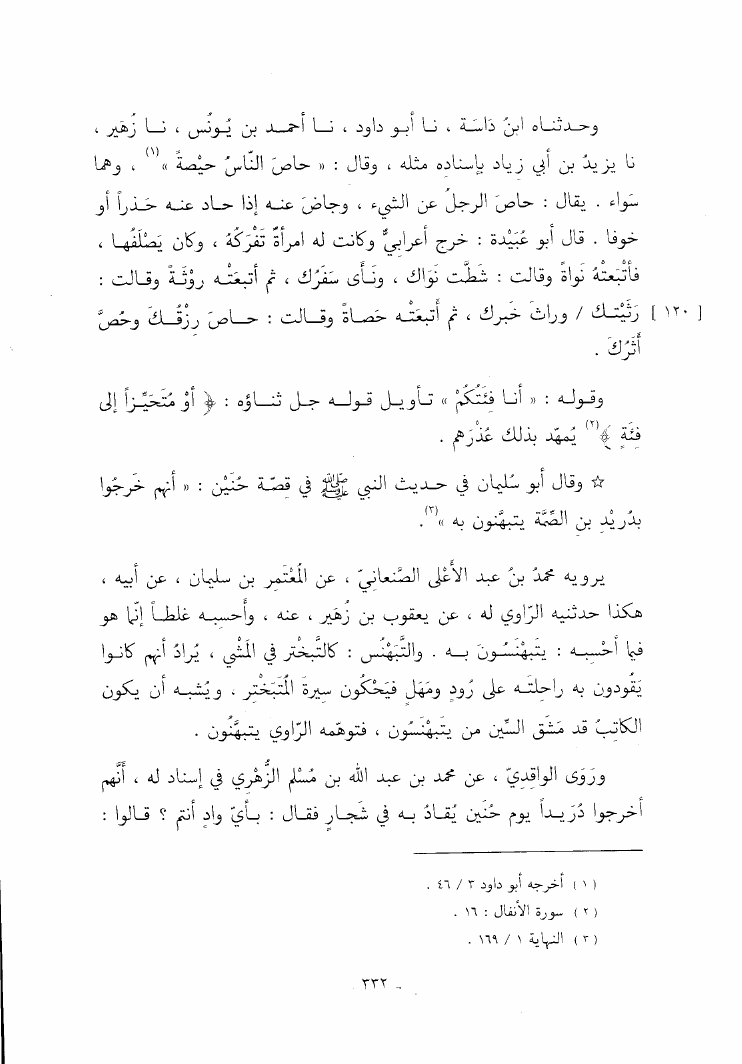 وحدثناه ابنُ دَاسَة ، نا أبو داود ، نا أحمد بن يُونُس ، نا زُهَير ،
نا يزيدُ بن أبي زياد بإسناده مثله ، وقال : « حاصَ النَّاسُ حَيْصةً »(١) ، وهما
سَواء . يقال : حاصَ الرجلُ عن الشيء ، وجاضَ عنه إذا حاد عنه حَذراً أو
خوفا . قال أبو عُبَيْدة : خرج أعرابيٌّ وكانت له امرأةٌ تَفْرَكُهُ ، وكان يَصْلَفُها ،
فأتْبَعتْهُ نَواةً وقالت : شطَّت نَواك ، ونَأى سَفَرُك ، ثم أتبعَتْه رَوْثَةً وقالت :
[ ١٢٠ ] رَثَيْتك / وراثَ خَبرك ، ثم أتبعَتْه حَصاةً وقالت : حاصَ رِزْقُكَ وحُصَّ
أَثَرُكَ .
وقوله : « أنا فئتُكُمْ » تأويل قوله جل ثناؤه : ﴿ أَوْ مُتَحَيِّزاً إلى
فئَةٍ ﴾(٢) يُمهّد بذلك عُذْرَهم .
☆ وقال أبو سُليمان في حديث النبي ﷺ في قصّة حُنَيْن : « أنهم خَرجُوا
بدُرَيْدِ بن الصِّمَّة يتبهَّنون به »(٣).
يرويه محمدُ بنُ عبد الأَعْلى الصَّنعانيّ ، عن المُعْتَمِر بن سليمان ، عن أبيه ،
هكذا حدثنيه الرّاوي له ، عن يعقوب بن زُهَير ، عنه ، وأحسبه غلطاً إنّما هو
فيما أحْسِبه : يتبهْنَسُونَ به . والتَّبَهْنُس : كالتَّبختر في المَشْي ، يُرادُ أنهم كانوا
يَقُودون به راحِلتَه على رُودٍ ومَهَلٍ فيَحْكُون سِيرةَ المُتَبختِر . ويُشبه أن يكون
الكاتبُ قد مَشَق السِّين من يتبهْنَسُون ، فتوهّمه الرّاوي يتبهَّنُون .
ورَوَى الواقديّ ، عن محمد بن عبد الله بن مُسْلم الزُّهْري في إسناد له ، أنَّهم
أخرجوا دُرَيداً يوم حُنَين يُقادُ به في شَجارٍ فقال : بأيّ وادٍ أنتم ؟ قالوا :
( ١ ) أخرجه أبو داود ٣ / ٤٦ .
( ٢ ) سورة الأنفال : ١٦ .
( ٣ ) النهاية ١ / ١٦٩ .
- ٣٣٢ -